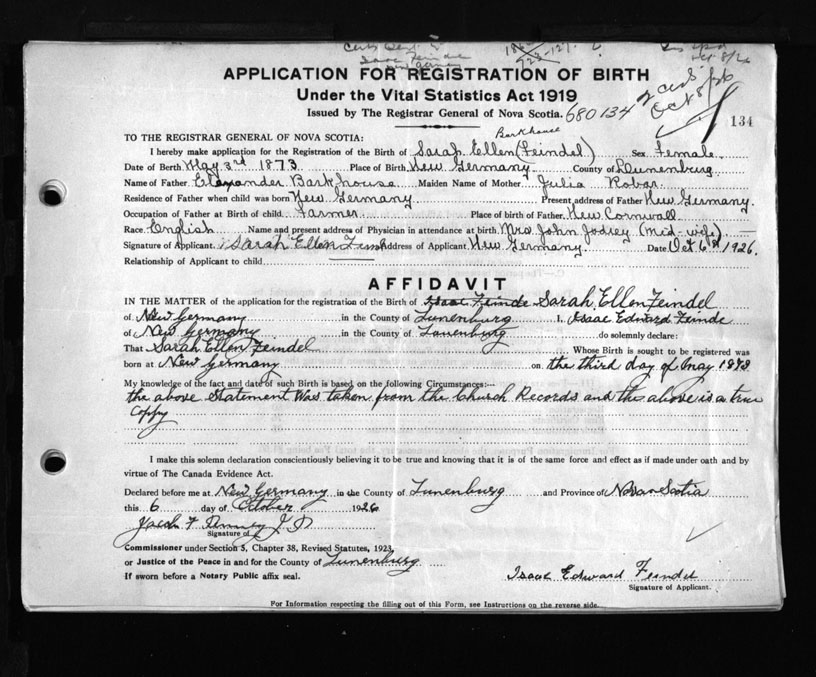 Isaac Feindel
New Germany
APPLICATION FOR REGISTRATION OF BIRTH
Under the Vital Statistics Act 1919
Issued by The Registrar General of Nova Scotia. 680134
2 certs
Oct 8/26
134
TO THE REGISTRAR GENERAL OF NOVA SCOTIA:
Barkhouse
I hereby make application for the Registration of the Birth of Sarah Ellen (Feindel) Sex Female
Date of Birth May 3rd 1873 Place of Birth New Germany County of Lunenburg
Name of Father Elexander Barkhouse Maiden Name of Mother Julia Robar
Residence of Father when child was born New Germany Present address of Father New Germany
Occupation of Father at Birth of child Farmer Place of birth of Father New Cornwall
Race English Name and present address of Physician in attendance at birth Mrs John Jodrey (Mid-wife)
Signature of Applicant Sarah Ellen Address of Applicant New Germany Date Oct 6th 1926
Relationship of Applicant to child
AFFIDAVIT
IN THE MATTER of the application for the registration of the Birth of Isaac Feinde Sarah Ellen Feindel
of New Germany in the County of Lunenburg I, Isaac Edward Feinde
of New Germany in the County of Lunenburg do solemnly declare:
That Sarah Ellen Feindel Whose Birth is sought to be registered was
born at New Germany on the third day of May 1873
My knowledge of the fact and date of such Birth is based on the following Circumstances:—
the above Statement was taken from the Church Records and the above is a true
Copy
I make this solemn declaration conscientiously believing it to be true and knowing that it is of the same force and effect as if made under oath and by
virtue of The Canada Evidence Act.
Declared before me at New Germany in the County of Lunenburg and Province of Nova Scotia
this 6 day of October 1926
Jacob F
Signature of
Commissioner under Section 5, Chapter 38, Revised Statutes, 1923
or Justice of the Peace in and for the County of Lunenburg
If sworn before a Notary Public affix seal.
Isaac Edward Feindel
Signature of Applicant.
For Information respecting the filling out of this Form, see Instructions on the reverse side.